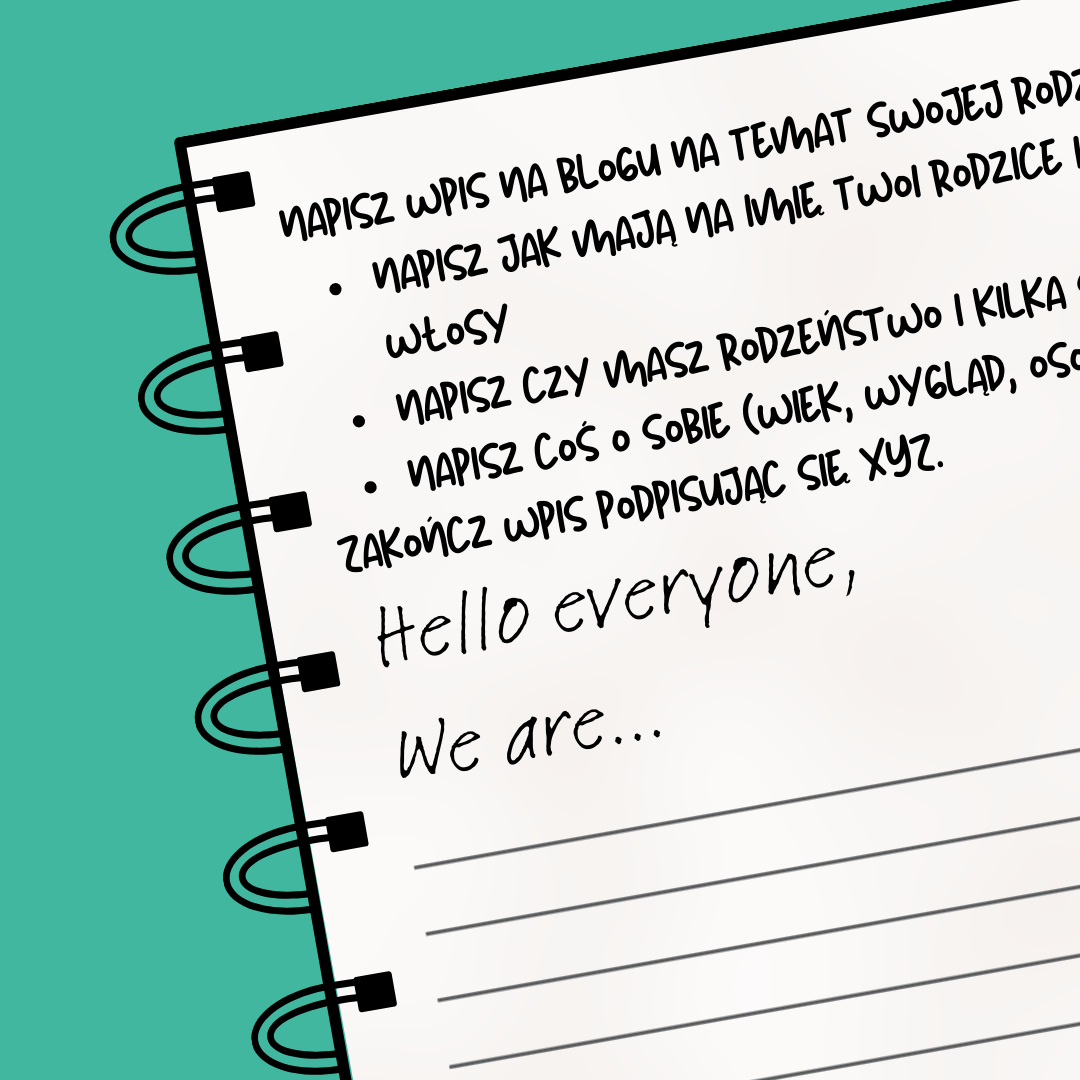 NAPISZ WPIS NA BLOGU NA TEMAT SWOJEJ
• NAPISZ JAK MAJĄ NA IMIĘ TWOI RODZICE
WŁOSY
• NAPISZ CZY MASZ RODZEŃSTWO I KILKA
• NAPISZ COŚ O SOBIE (WIEK, WYGLĄD,
ZAKOŃCZ WPIS PODPISUJĄC SIĘ XYZ.
Hello everyone,
We are...